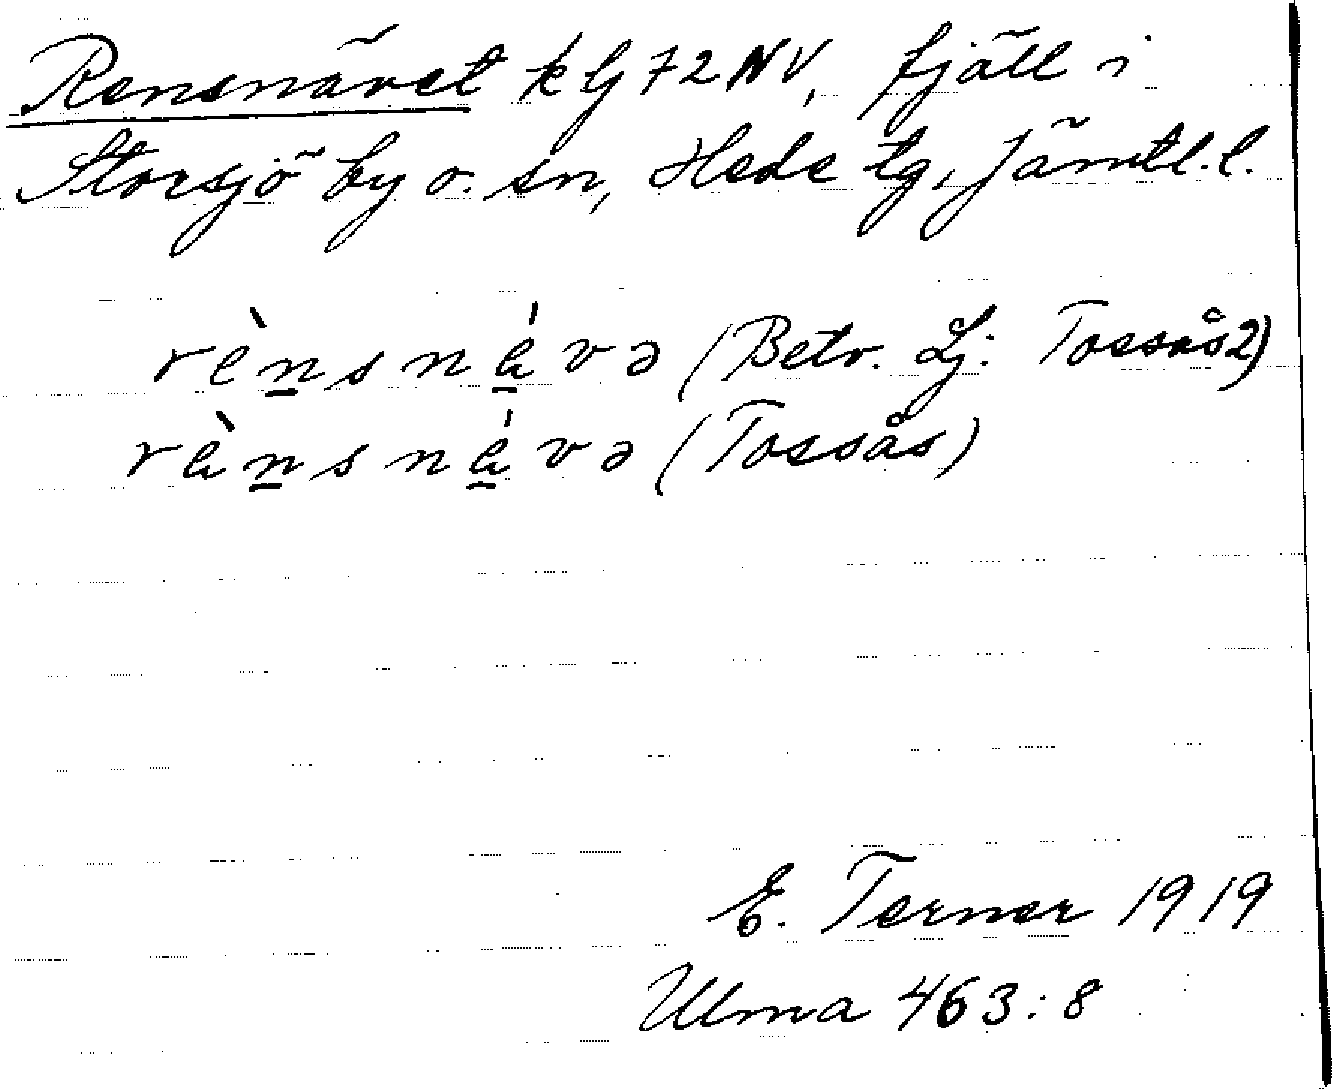 Rensnävet klj 72 NV, fjäll i
Storsjö by o. sn, Hede tg, Jämtl. l.
rènsnávə (Betr. Lj: Tossås2)
rènsnávə (Tossås)
E. Terner 1919
Ulma 463:8